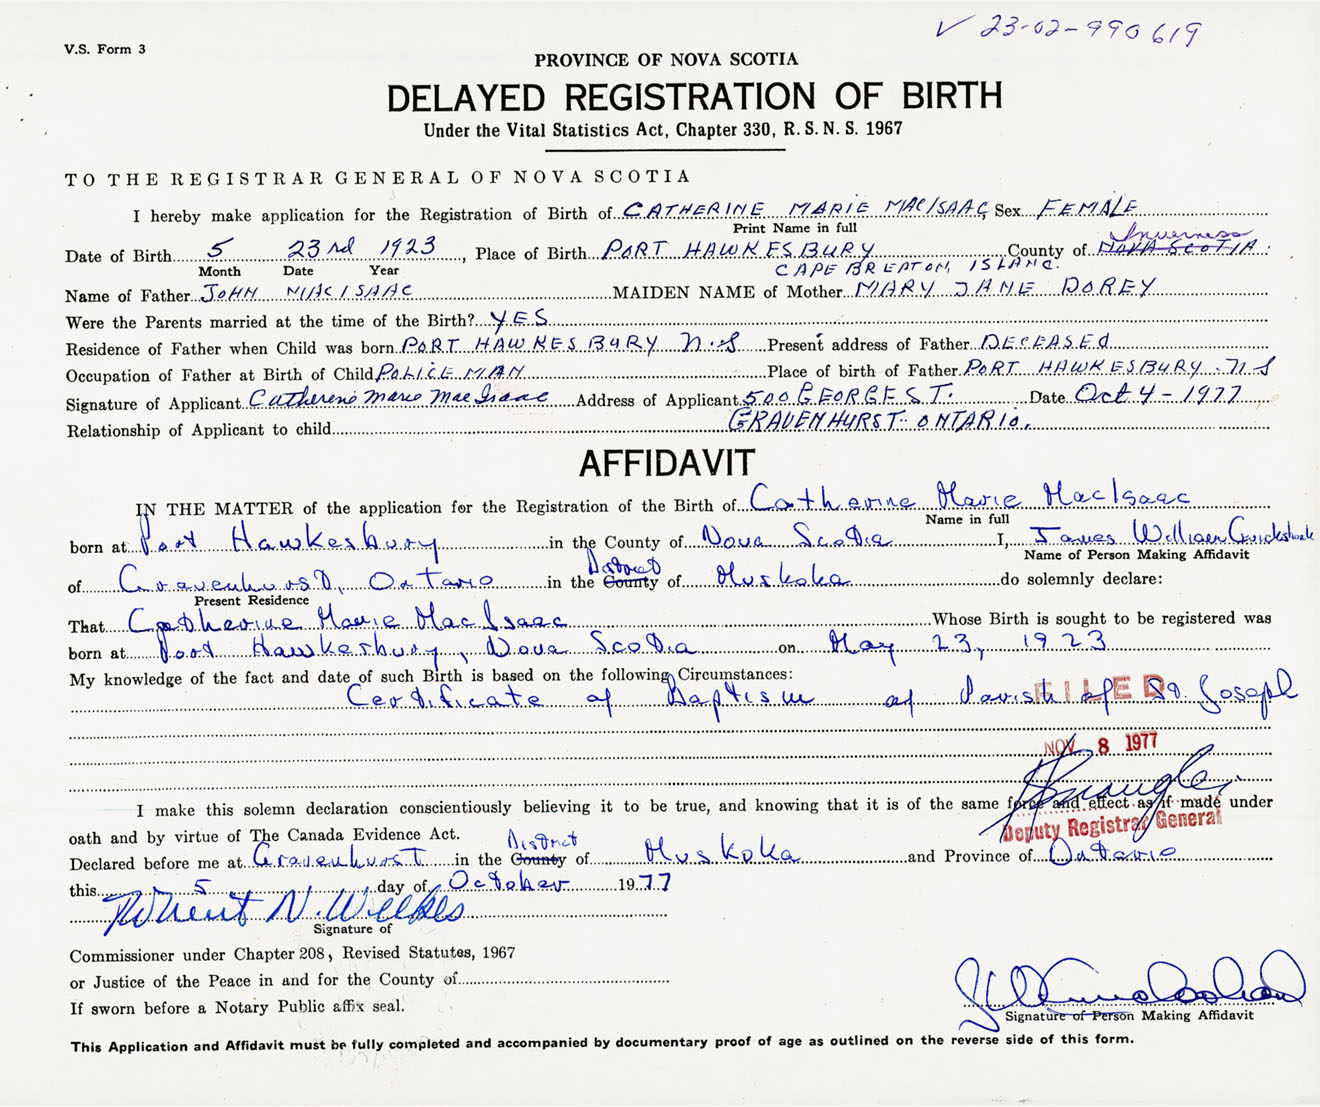 V 23-02-990619
V.S. Form 3
PROVINCE OF NOVA SCOTIA
DELAYED REGISTRATION OF BIRTH
Under the Vital Statistics Act, Chapter 330, R.S.N.S. 1967
TO THE REGISTRAR GENERAL OF NOVA SCOTIA
I hereby make application for the Registration of Birth of CATHERINE MARIE MACISAAC Sex FEMALE
Print Name in full
Inverness
Date of Birth 5 23rd 1923, Place of Birth PORT HAWKESBURY County of NOVA SCOTIA
Month Date Year CAPE BREATON, ISLAND.
Name of Father JOHN MACISAAC MAIDEN NAME of Mother MARY JANE DOREY
Were the Parents married at the time of the Birth? YES
Residence of Father when Child was born PORT HAWKESBURY N.S Present address of Father DECEASED
Occupation of Father at Birth of Child POLICE MAN Place of birth of Father PORT HAWKESBURY N S
Signature of Applicant Catherine Marie MacIsaac Address of Applicant 500 GEORGE ST. Date Oct 4 - 1977
Relationship of Applicant to child GRAVENHURST ONTARIO.
AFFIDAVIT
IN THE MATTER of the application for the Registration of the Birth of Catherine Marie MacIsaac
Name in full
born at Port Hawkesbury in the County of Nova Scotia I, James William Cruickshank
Name of Person Making Affidavit
District
of Gravenhurst, Ontario in the County of Muskoka do solemnly declare:
Present Residence
That Catherine Marie MacIsaac Whose Birth is sought to be registered was
born at Port Hawkesbury, Nova Scotia on May 23, 1923
My knowledge of the fact and date of such Birth is based on the following Circumstances:
Certificate of Baptism of Parish of St. Joseph
FILED
NOV 8 1977
I make this solemn declaration conscientiously believing it to be true, and knowing that it is of the same force and effect as if made under
Deputy Registrar General
oath and by virtue of The Canada Evidence Act.
District
Declared before me at Gravenhurst in the County of Muskoka and Province of Ontario
this 5 day of October 1977
N. Willes
Signature of
Commissioner under Chapter 208, Revised Statutes, 1967
or Justice of the Peace in and for the County of
If sworn before a Notary Public affix seal.
Signature of Person Making Affidavit
This Application and Affidavit must be fully completed and accompanied by documentary proof of age as outlined on the reverse side of this form.